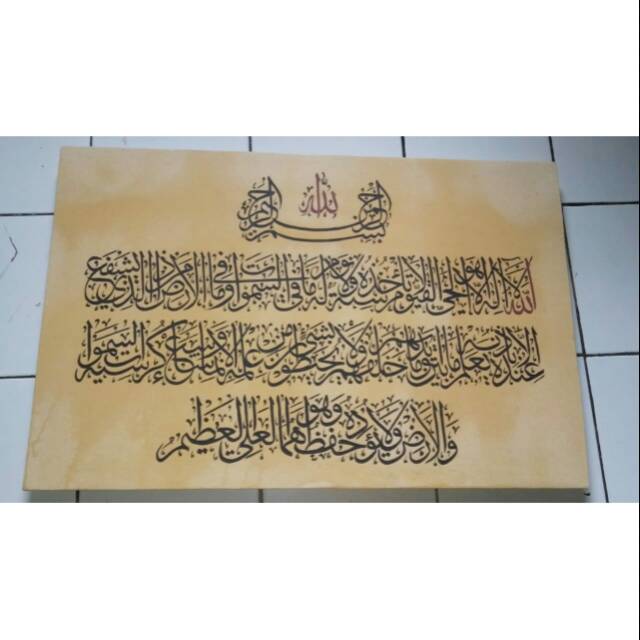 بسم الله الرحمن الرحيم
الله لا إله إلا هو الحي القيوم لا تأخذه سنة ولا نوم له ما في السموات وما في الأرض من ذا الذي يشفع
عنده إلا بإذنه يعلم ما بين أيديهم وما خلفهم ولا يحيطون بشيء من علمه إلا بما شاء وسع كرسيه السموات
والأرض ولا يؤده حفظهما وهو العلي العظيم